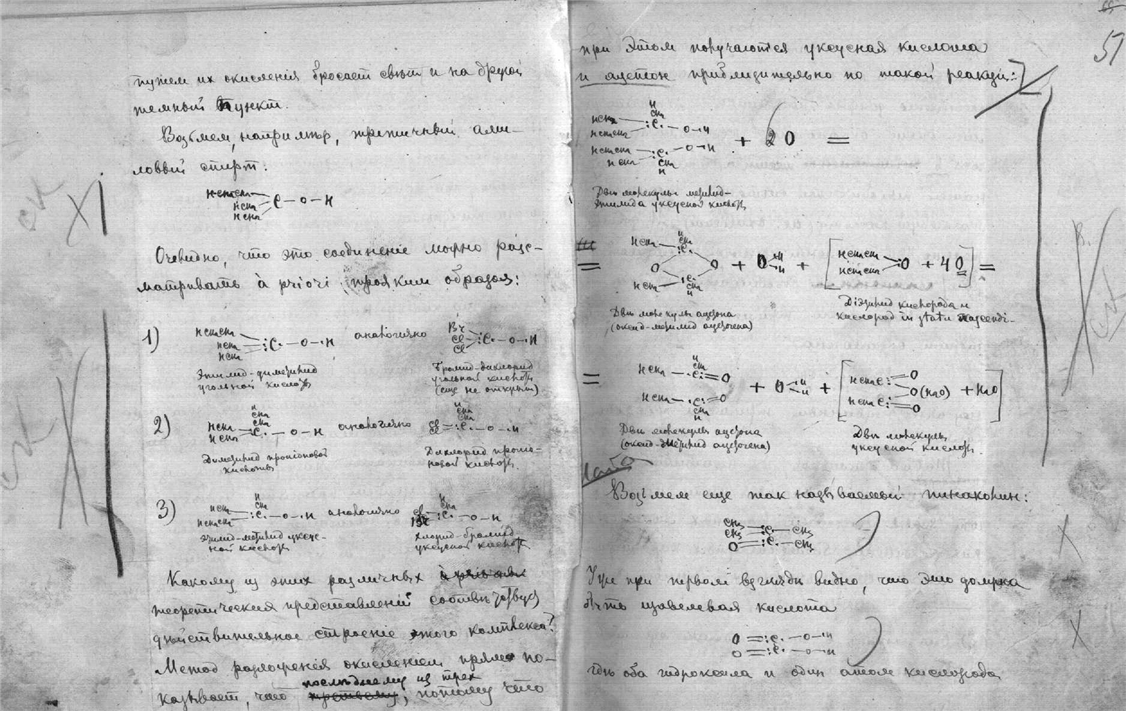 путем их окисленiя бросает свѣт и на другой
темный пункт.
Возьмем, например, третичный ами-
ловый спирт:
HCHCH
HCH
HCH
C – O – H
Очевидно, что это соединенiе можно разс-
матривать à priori трояким образом:
1)
HCHCH
HCH
HCH
C – O – H
аналогично
Br
Cl
Cl
C – O – H
Этилид-диметилид
угольной кислоты
Бромид-дихлорид
угольной кислоты
(еще не открыт)
2)
H
CH
CH
HCH
HCH
C – O – H
аналогично
H
CH
CH
Cl
Cl
C – O – H
Диметилид пропiоновой
кислоты
Дихлорид пропiо-
новой кислоты
3)
H
CH
HCH
HCHCH
C – O – H
аналогично
H
CH
Cl
Br
C – O – H
Этилид-метилид уксус-
ной кислоты
Хлорид-бромид
уксусной кислоты
Какому из этих различных
теоретических представленiй соответствует
дѣйствительное строенiе этого комплекса?
Метод разложенiя окисленiем прямо по-
казывает, что последнему из трех, потому что
51
при этом получаются уксусная кислота
и ацетон приблизительно по такой реакцiи:
H
CH
HCH
HCHCH
C – O – H
HCHCH
HCH
C – O – H
CH
H
+ 2O =
Двѣ молекулы метилид-
этилида уксусной кислоты
=
H
CH
HCH
C
O O
HCH
C
CH
H
+ O H H + [HCHCH HCHCH O + 4O] =
Двѣ молекулы ацетона
(оксид-метилид ацетогена)
Диэтилид кислорода и
кислород in statu nascendi.
=
H
CH
HCH C = O
HCH C = O
CH
H
+ O H H + [HCH C O O(H2O) HCH C O + H2O]
Двѣ молекулы ацетона
(оксид-метилид ацетогена)
Двѣ молекулы
уксусной кислоты
Возьмем еще так называемый пинаколин:
CH3
CH3
C – CH3
O = C – CH3
Уже при первом взглядѣ видно, что это должна
быть щавелевая кислота
O = C – O – H
O = C – O – H
гдѣ оба гидроксила и один атом кислорода